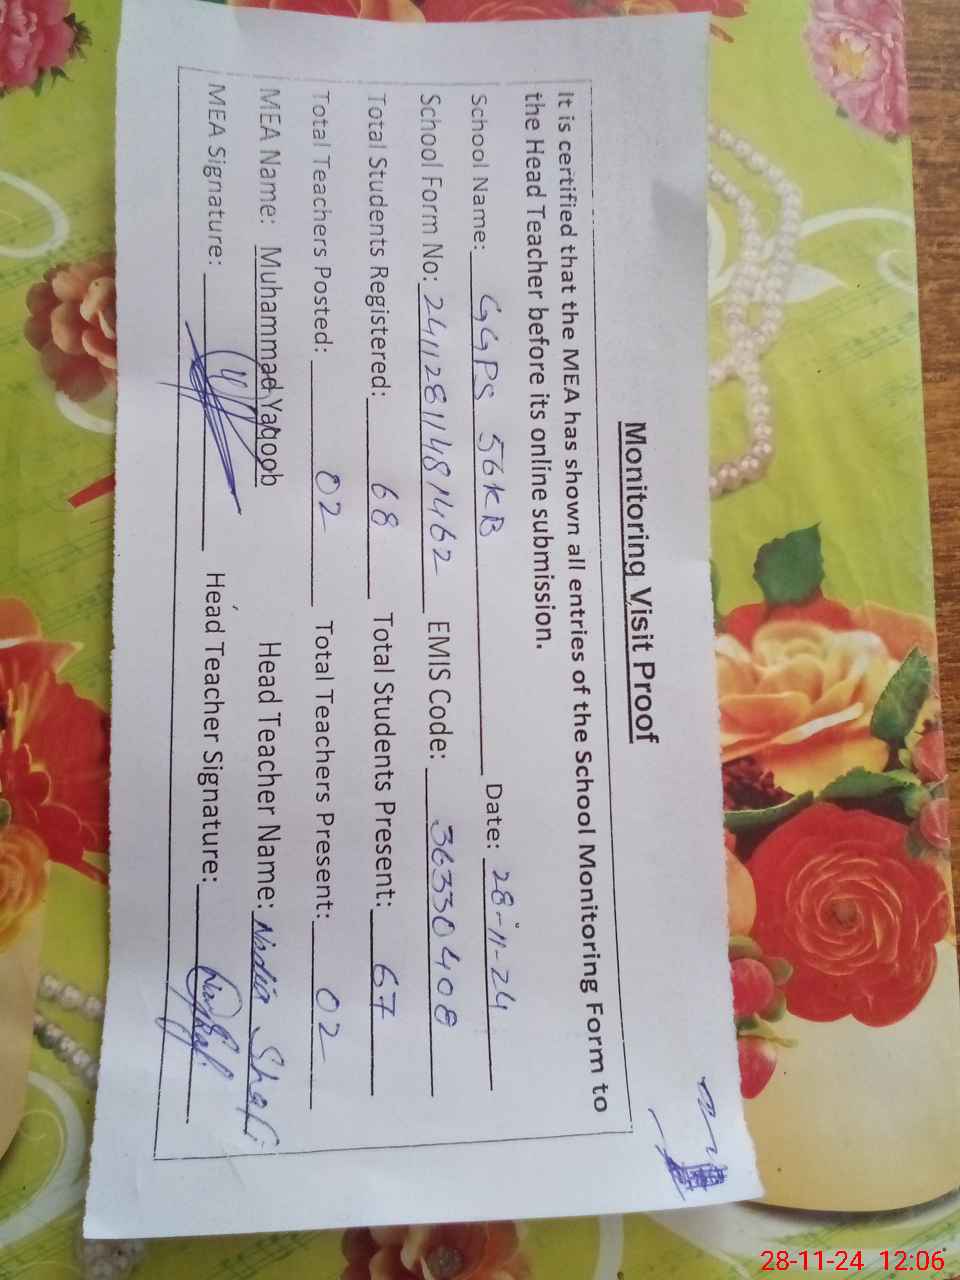 Monitoring Visit Proof
It is certified that the MEA has shown all entries of the School Monitoring Form to
the Head Teacher before its online submission.
School Name: GGPS 56KB Date: 28-11-24
School Form No: 24112811481462 EMIS Code: 36330408
Total Students Registered: 68 Total Students Present: 67
Total Teachers Posted: 02 Total Teachers Present: 02
MEA Name: Muhammad Yaqoob Head Teacher Name: Nadia Shafi
MEA Signature: Head Teacher Signature:
28-11-24 12:06